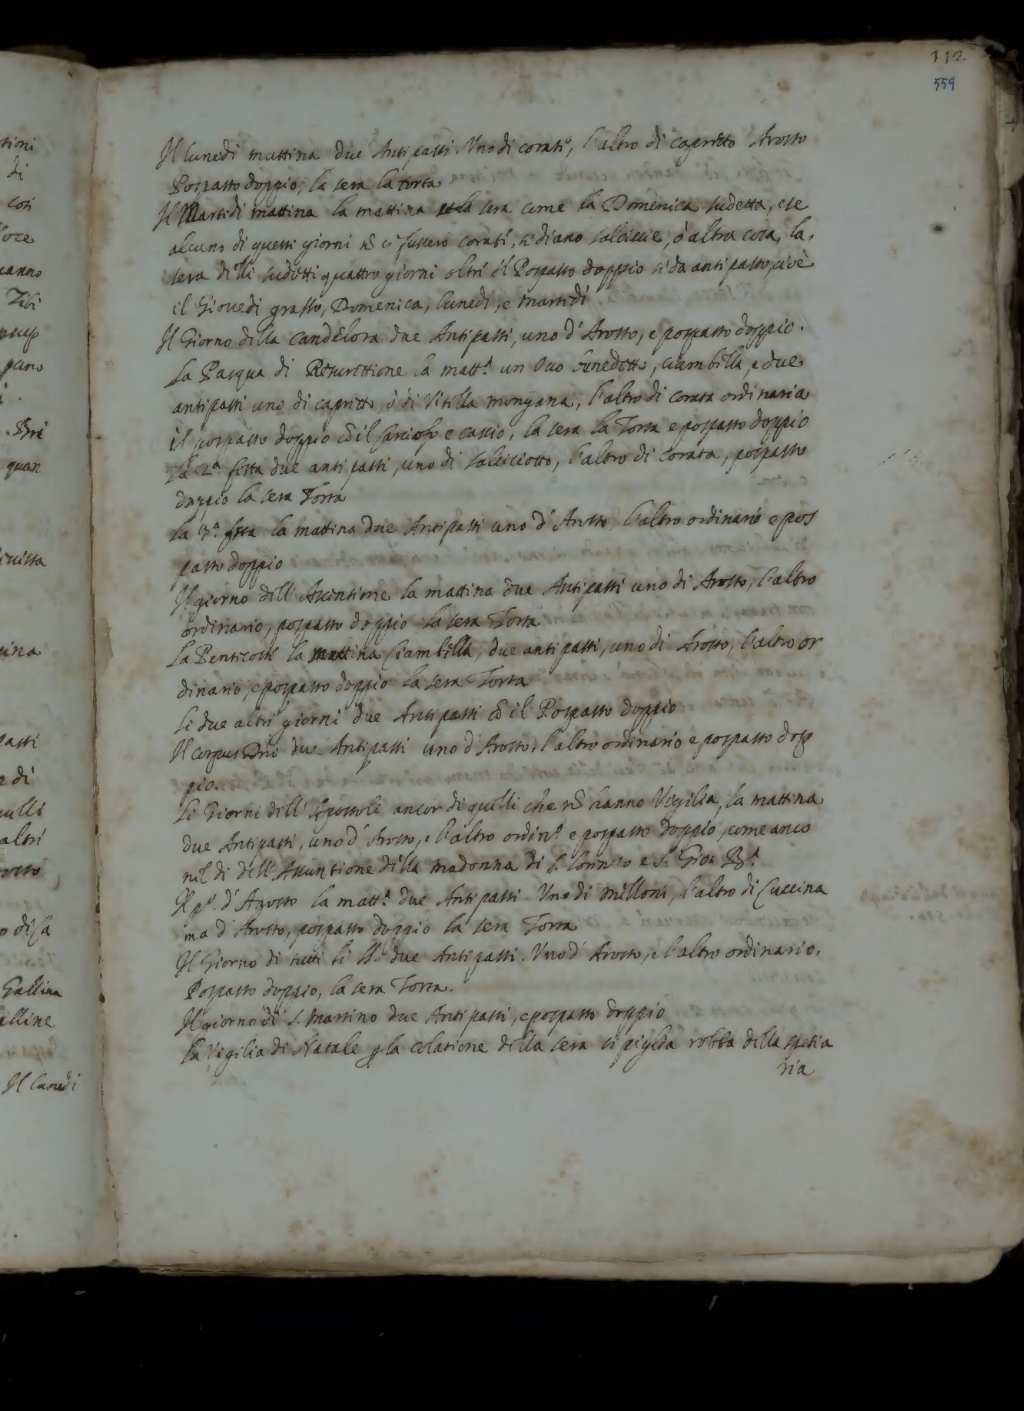 112.
559
Il lunedi mattina due Antipasti. Uno di corati, l'altro di capretto Arosto
Pospasto doppio, la sera la torta
Il Martidi mattina la mattina e la sera come la Domenica sudetta, e se
alcuno di questi giorni nõ ci fussero corati, si diano salciccie, ò altra cosa, la
sera delli sudetti quattro giorni oltrè il Pospasto doppio si da antipasto, cioè
il Giovedi grasso, Domenica, lunedi, e martidi
Il Giorno della Candelora due Antipasti, uno d'Arosto, e pospasto doppio.
La Pasqua di Resurettione la matt.a un Ovo benedetto, ciambella, e due
antipasti uno di capretto, ò di Vitella mongana, l'altro di corata ordinaria
il pospasto doppio cõ il carciofo e cascio, la sera la Torta e pospasto doppio
La 2.a festa due antipasti, uno di salciciotto, l'altro di corata, pospasto
doppio la sera Torta
La 3.a festa la mattina due Antipasti uno d'Arosto, l'altro ordinario e pos
pasto doppio
Il giorno dell'Ascentione la mattina due Antipasti uno di Arosto, l'altro
ordinario, pospasto doppio la sera Torta
La Penticoste la mattina Ciambella, due antipasti, uno di Arosto, l'altro or
dinario, e pospasto doppio la sera Torta
Li due altri giorni due Antipasti cõ il Pospasto doppio
Il corpus Dñi due Antipasti uno d'Arosto, l'altro ordinario e pospasto dop
pio.
Li Giorni dell'Apostoli ancor di quelli che nõ hanno Vigilia, la mattina
due Antipasti, uno d'Arosto, e l'altro ordin.o e pospasto doppio, come anco
nel di dell'Assuntione della madonna di S. Lorenzo e S. Gio: B.a
Il p.o d'Agosto la matt.a due Antipasti. Uno di milloni, l'altro di Cuccina
ma d'Arosto, pospasto doppio la sera Torta
Il Giorno di tutti li S.ti due Antipasti. Uno d'Arosto, e l'altro ordinario.
Pospasto doppio, la sera Torta.
Il giorno di S. Martino due Antipasti, e pospasto doppio
La Vigilia di Natale p la colatione della sera si piglia robba della spetia
ria